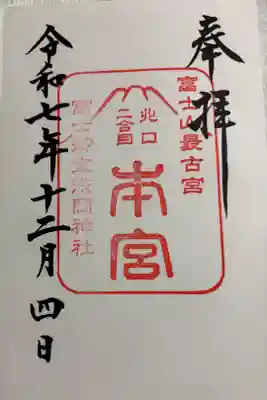 奉拝
富士山最古宮
北口
二合目
本宮
冨士御室浅間神社
令和七年十二月四日